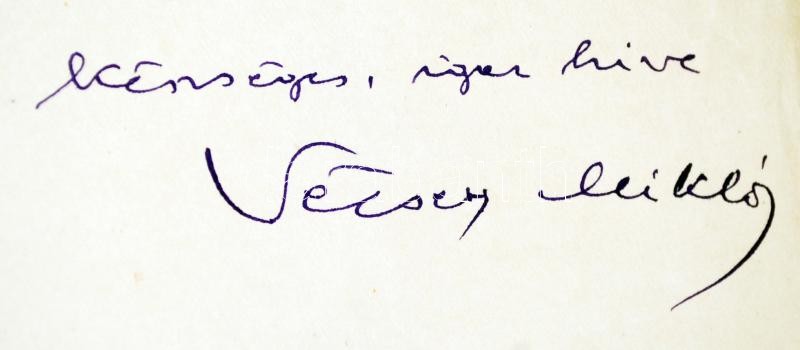 készséges, igaz híve
Vécsey Miklós